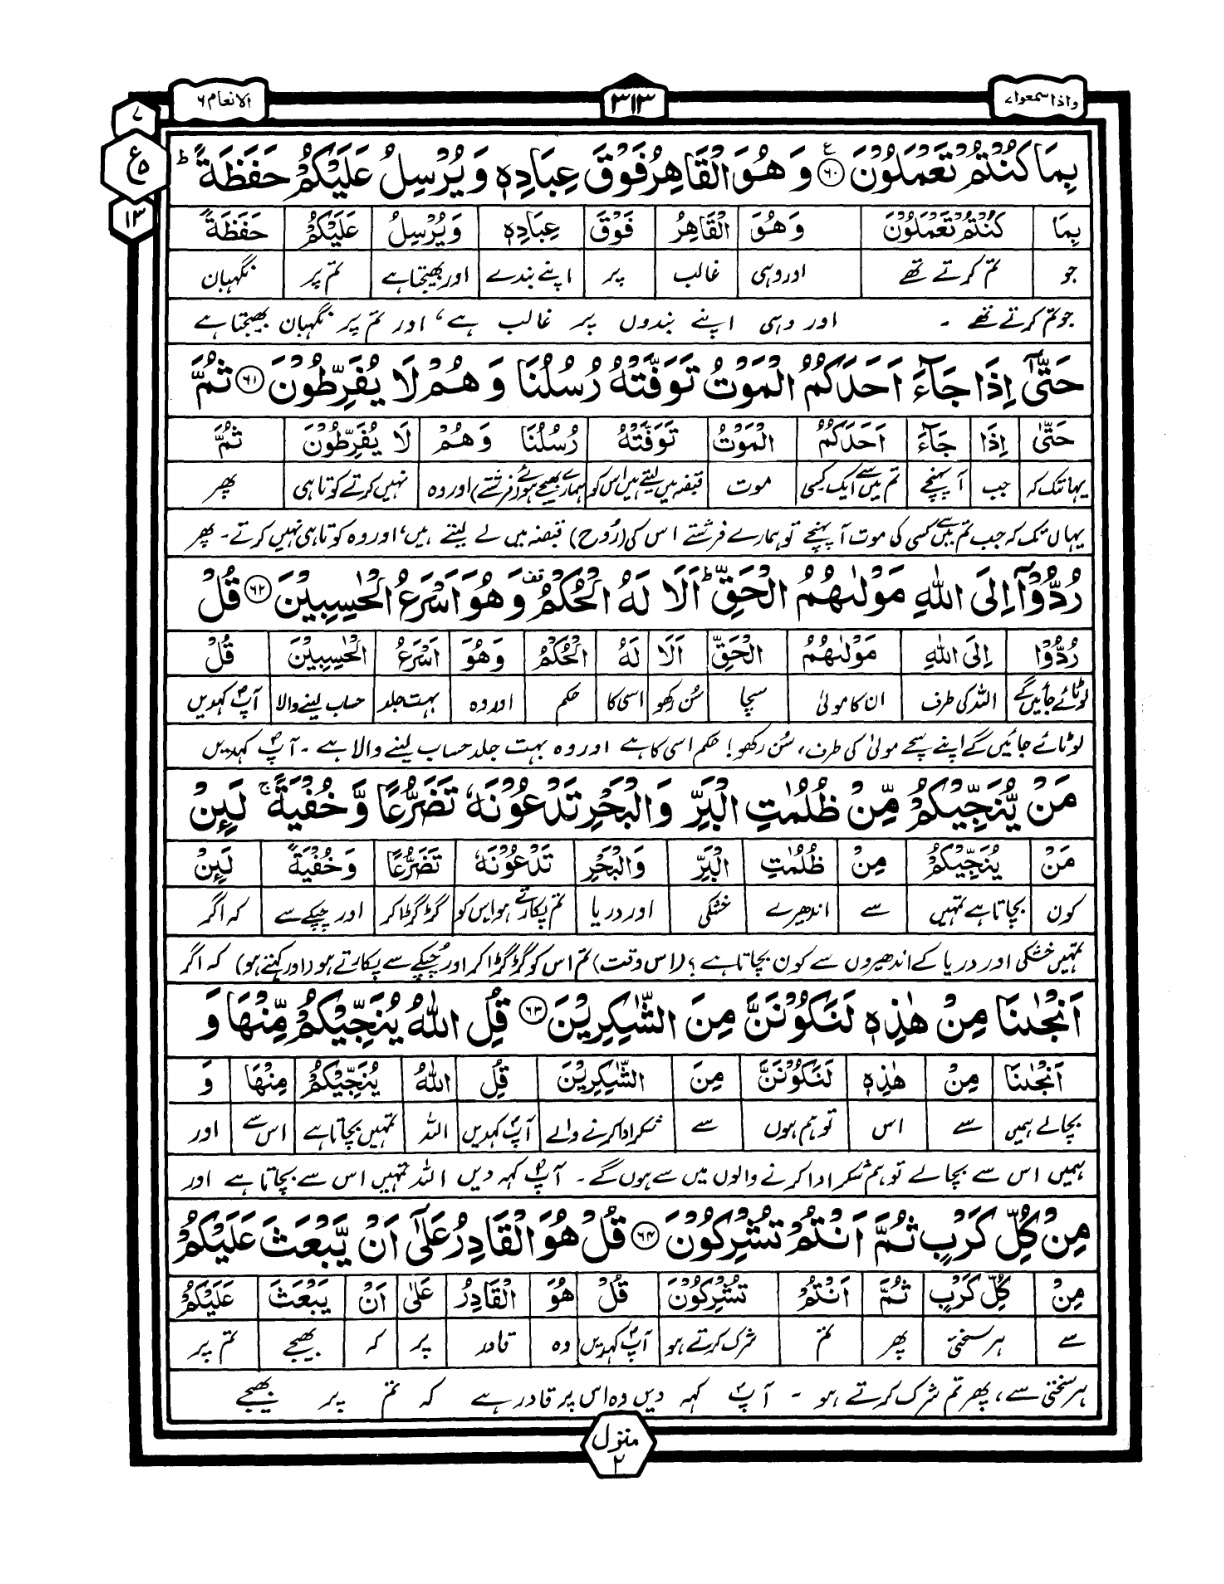 واذا سمعوا ۷
۳۱۳
الانعام ۶
۷
ع ۵
۱۳
بِمَا كُنْتُمْ تَعْمَلُوْنَ ۝۶۰ وَ هُوَ الْقَاهِرُ فَوْقَ عِبَادِهٖ وَ يُرْسِلُ عَلَيْكُمْ حَفَظَةً ؕ
بِمَا كُنْتُمْ تَعْمَلُوْنَ وَ هُوَ الْقَاهِرُ فَوْقَ عِبَادِهٖ وَ يُرْسِلُ عَلَيْكُمْ حَفَظَةً
جو تم کرتے تھے اور وہی غالب پر اپنے بندے اور بھیجتا ہے تم پر نگہبان
جو تم کرتے تھے ۔ اور وہی اپنے بندوں پر غالب ہے، اور تم پر نگہبان بھیجتا ہے
حَتّٰۤى اِذَا جَآءَ اَحَدَكُمُ الْمَوْتُ تَوَفَّتْهُ رُسُلُنَا وَ هُمْ لَا يُفَرِّطُوْنَ ۝۶۱ ثُمَّ
حَتّٰى اِذَا جَآءَ اَحَدَكُمُ الْمَوْتُ تَوَفَّتْهُ رُسُلُنَا وَ هُمْ لَا يُفَرِّطُوْنَ ثُمَّ
یہانتک کہ جب آپہنچے تم میں سے ایک۔کسی موت قبضہ میں لیتے ہیں اس کو ہمارے بھیجے ہوئے (فرشتے) اور وہ نہیں کرتے کوتاہی پھر
یہاں تک کہ جب تم میں سے کسی کی موت آ پہنچے تو ہمارے فرشتے اس کی (رُوح) قبضہ میں لے لیتے ہیں، اور وہ کوتاہی نہیں کرتے۔ پھر
رُدُّوْۤا اِلَى اللّٰهِ مَوْلٰىهُمُ الْحَقِّ ؕ اَلَا لَهُ الْحُكْمُ ۫ وَ هُوَ اَسْرَعُ الْحٰسِبِيْنَ ۝۶۲ قُلْ
رُدُّوْٓا اِلَى اللّٰهِ مَوْلٰىهُمُ الْحَقِّ اَلَا لَهُ الْحُكْمُ وَ هُوَ اَسْرَعُ الْحٰسِبِيْنَ قُلْ
لوٹائے جائیں گے اللہ کی طرف ان کا مولیٰ سچا سُن رکھو اسی کا حکم اور وہ بہت جلد حساب لینے والا آپؐ کہدیں
لوٹائے جائیں گے اپنے سچے مولیٰ کی طرف، سُن رکھو! حکم اسی کا ہے اور وہ بہت جلد حساب لینے والا ہے ۔ آپؐ کہدیں
مَنْ يُّنَجِّيْكُمْ مِّنْ ظُلُمٰتِ الْبَرِّ وَ الْبَحْرِ تَدْعُوْنَهٗ تَضَرُّعًا وَّ خُفْيَةً ۚ لَىِٕنْ
مَنْ يُنَجِّيْكُمْ مِنْ ظُلُمٰتِ الْبَرِّ وَالْبَحْرِ تَدْعُوْنَهٗ تَضَرُّعًا وَ خُفْيَةً لَىِٕنْ
کون بچاتا ہے تمہیں سے اندھیرے خشکی اور دریا تم پکارتے ہو اس کو گڑگڑا کر اور چپکے سے کہ اگر
تمہیں خشکی اور دریا کے اندھیروں سے کون بچاتا ہے؟ (اس وقت) تم اس کو گڑگڑا کر اور چُپکے سے پکارتے ہو (اور کہتے ہو) کہ اگر
اَنْجٰىنَا مِنْ هٰذِهٖ لَنَكُوْنَنَّ مِنَ الشّٰكِرِيْنَ ۝۶۳ قُلِ اللّٰهُ يُنَجِّيْكُمْ مِّنْهَا وَ
اَنْجٰىنَا مِنْ هٰذِهٖ لَنَكُوْنَنَّ مِنَ الشّٰكِرِيْنَ قُلِ اللّٰهُ يُنَجِّيْكُمْ مِنْهَا وَ
بچالے ہمیں سے اس تو ہم ہوں سے شکر ادا کرنے والے آپؐ کہدیں اللہ تمہیں بچاتا ہے اس سے اور
ہمیں اس سے بچالے تو ہم شکر ادا کرنے والوں میں سے ہوں گے۔ آپؐ کہہ دیں اللہ تمہیں اس سے بچاتا ہے اور
مِنْ كُلِّ كَرْبٍ ثُمَّ اَنْتُمْ تُشْرِكُوْنَ ۝۶۴ قُلْ هُوَ الْقَادِرُ عَلٰۤى اَنْ يَّبْعَثَ عَلَيْكُمْ
مِنْ كُلِّ كَرْبٍ ثُمَّ اَنْتُمْ تُشْرِكُوْنَ قُلْ هُوَ الْقَادِرُ عَلٰى اَنْ يَبْعَثَ عَلَيْكُمْ
سے ہر سختی پھر تم شرک کرتے ہو آپؐ کہدیں وہ قادر پر کہ بھیجے تم پر
ہر سختی سے، پھر تم شرک کرتے ہو ۔ آپؐ کہہ دیں وہ اس پر قادر ہے کہ تم پر بھیجے
منزل ۲